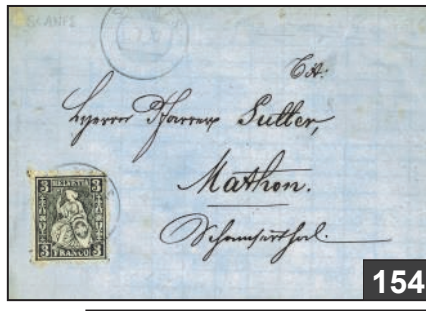 SCANFS
Tit:
Herrn Pfarrer Sutter,
Mathon.
Schamserthal.
3 HELVETIA 3
FRANCO
154